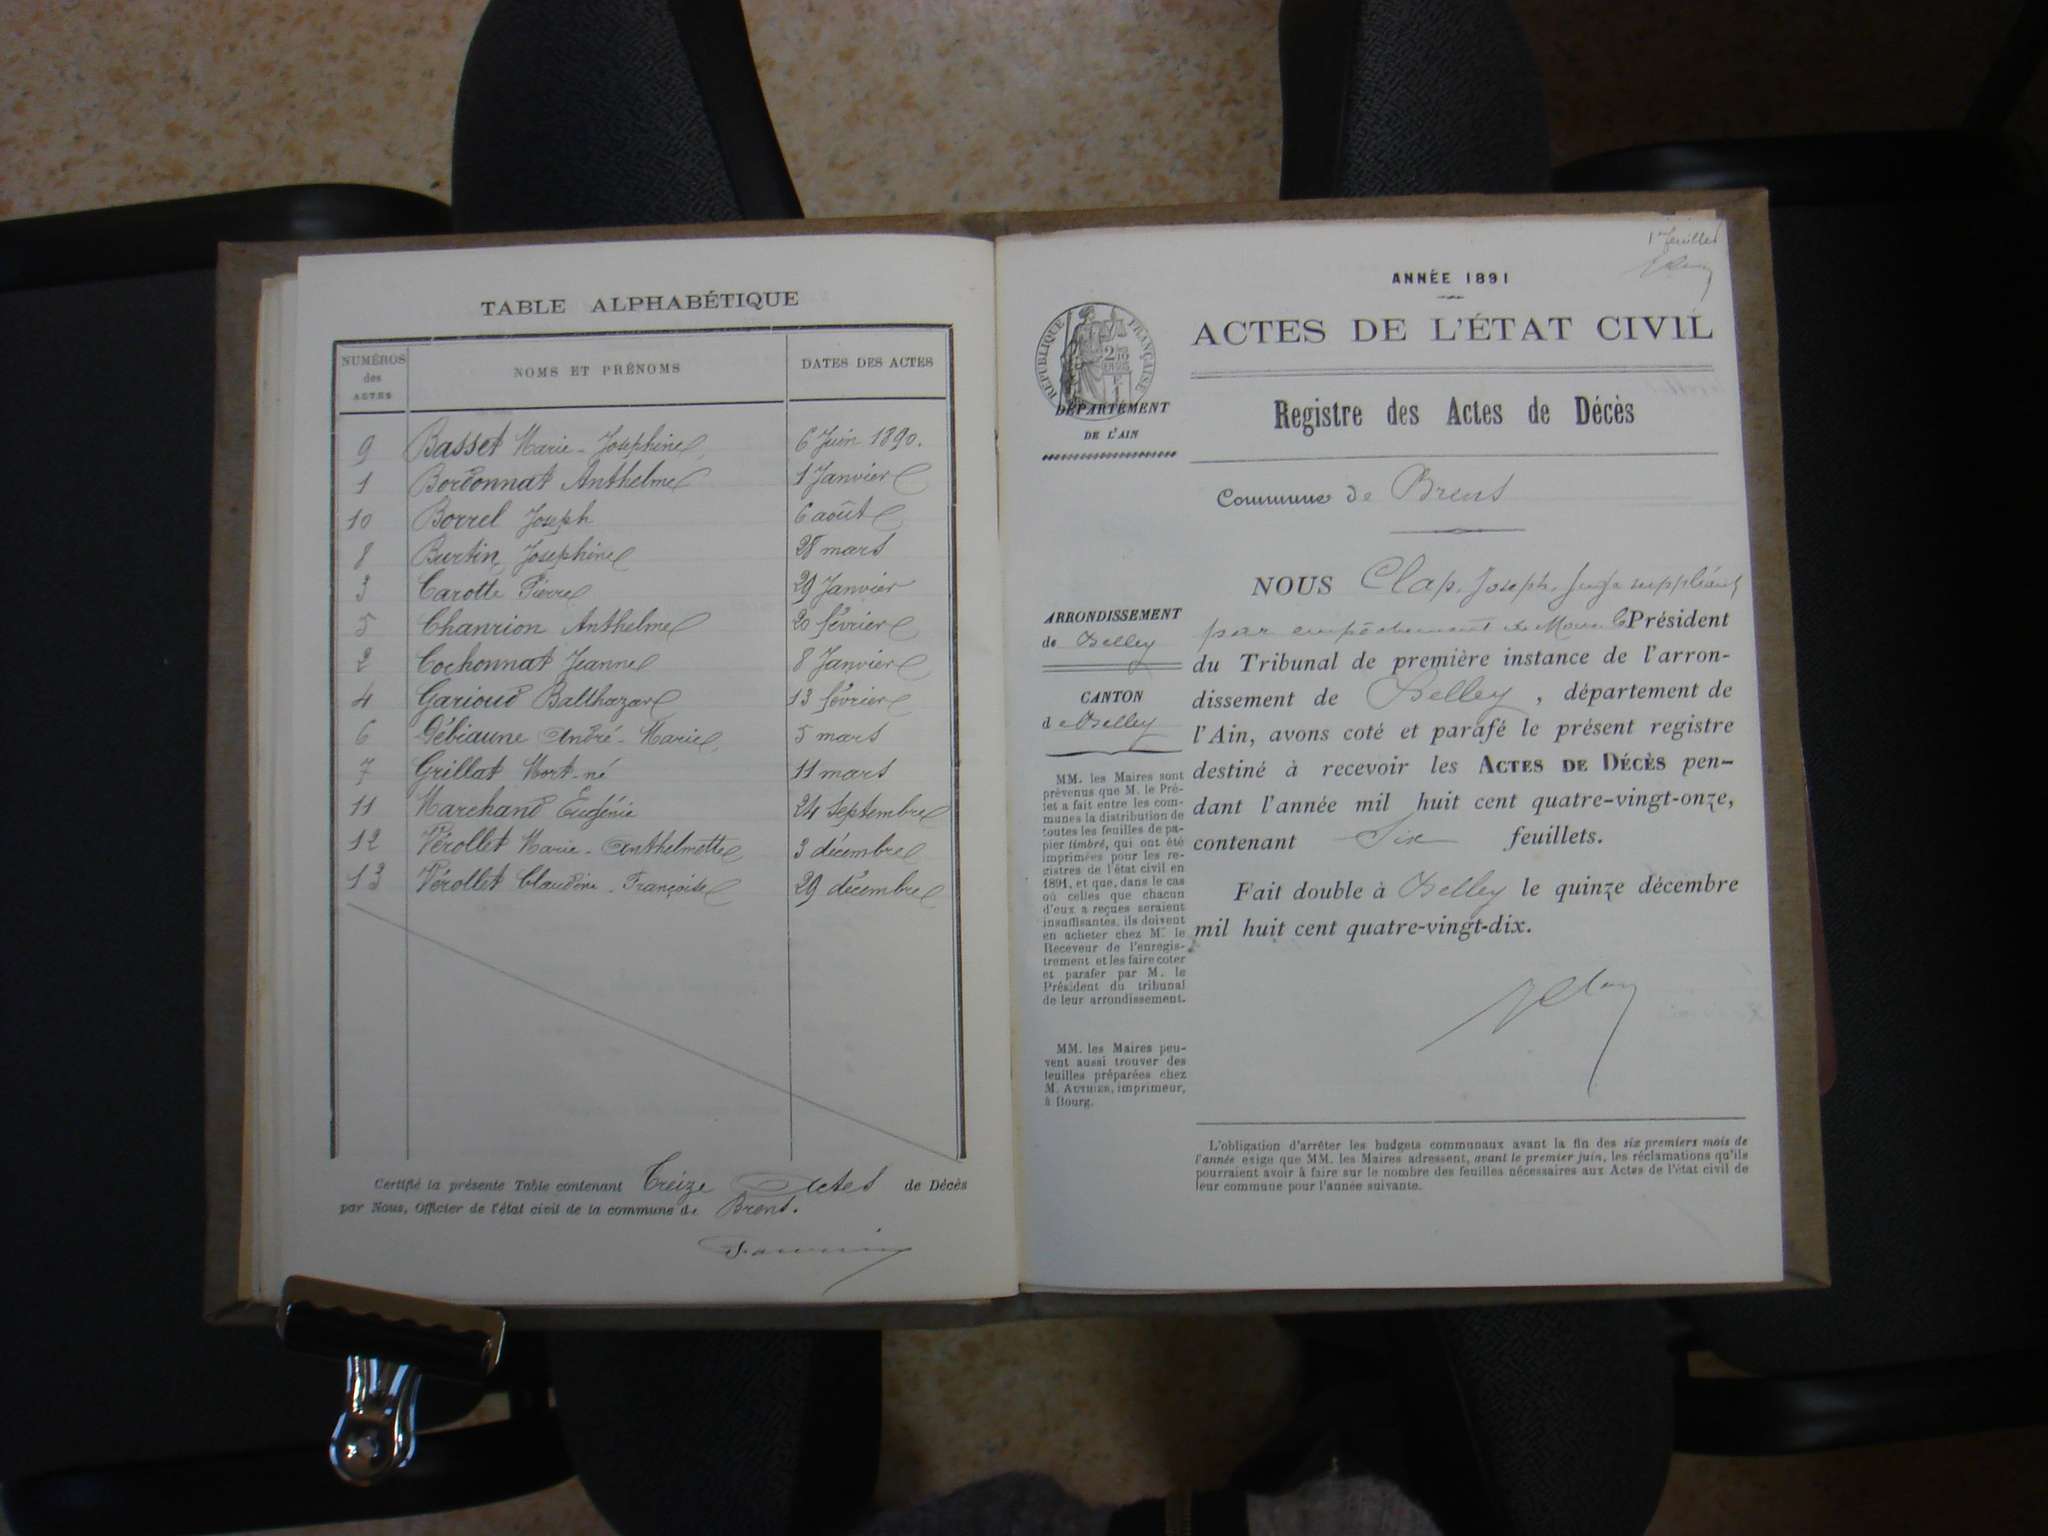 TABLE ALPHABÉTIQUE
NUMÉROS des ACTES NOMS ET PRÉNOMS DATES DES ACTES
9 Basset Marie-Josephine 6 Juin 1890.
1 Bordonnat Anthelme 1 Janvier
10 Borrel Joseph 6 août
8 Burtin Josephine 28 mars
3 Carotte Pierre 29 Janvier
5 Chanrion Anthelme 20 février
2 Cochonnat Jeanne 8 Janvier
4 Garioud Balthazar 13 février
6 Gébiaune André-Marie 5 mars
7 Grillat Mort-né 11 mars
11 Marchand Eugénie 24 Septembre
12 Pérollet Marie-Anthelmette 3 décembre
13 Pérollet Claudine-Françoise 29 décembre
Certifié la présente Table contenant Treize Actes de Décès
par Nous, Officier de l'état civil de la commune de Brens.
ANNÉE 1891
RÉPUBLIQUE FRANÇAISE
ACTES DE L'ÉTAT CIVIL
DÉPARTEMENT
DE L'AIN
Registre des Actes de Décès
Commune de Brens
NOUS Clap, Joseph, Juge suppléant
par empêchement de Mr le Président
ARRONDISSEMENT
de Belley
du Tribunal de première instance de l'arron-
dissement de Belley, département de
CANTON
de Belley
l'Ain, avons coté et parafé le présent registre
destiné à recevoir les ACTES DE DÉCÈS pen-
dant l'année mil huit cent quatre-vingt-onze,
contenant Six feuillets.
Fait double à Belley le quinze décembre
mil huit cent quatre-vingt-dix.
MM. les Maires sont
prévenus que M. le Pré-
fet a fait entre les com-
munes la distribution de
toutes les feuilles de pa-
pier timbré, qui ont été
imprimées pour les re-
gistres de l'état civil en
1891, et que, dans le cas
où celles que chacun
d'eux a reçues seraient
insuffisantes, ils doivent
en acheter chez M. le
Receveur de l'enregis-
trement et les faire coter
et parafer par M. le
Président du tribunal
de leur arrondissement.
MM. les Maires peu-
vent aussi trouver des
feuilles préparées chez
M. AUTHIER, imprimeur,
à Bourg.
L'obligation d'arrêter les budgets communaux avant la fin des six premiers mois de
l'année exige que MM. les Maires adressent, avant le premier juin, les réclamations qu'ils
pourraient avoir à faire sur le nombre des feuilles nécessaires aux Actes de l'état civil de
leur commune pour l'année suivante.